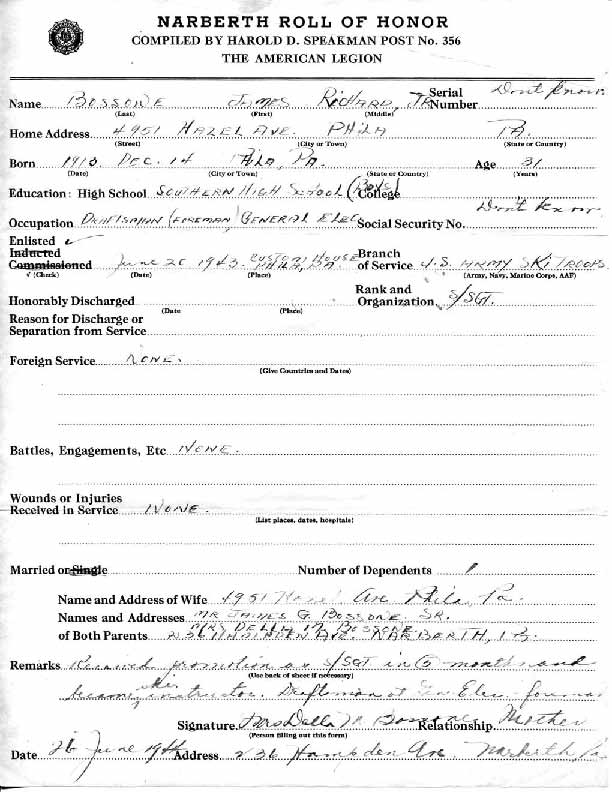 NARBERTH ROLL OF HONOR
COMPILED BY HAROLD D. SPEAKMAN POST No. 356
THE AMERICAN LEGION
Name BOSSONE JAMES RICHARD, JR. Serial Number Dont Know.
(Last) (First) (Middle)
Home Address 4951 HAZEL AVE. PHILA PA.
(Street) (City or Town) (State or Country)
Born 1913 DEC. 14 PHILA, PA. Age 31
(Date) (City or Town) (State or Country) (Years)
Education: High School SOUTHERN HIGH SCHOOL (BOYS) College
Occupation DRAFTSMAN (FOREMAN) GENERAL ELEC Social Security No. Dont Know.
Enlisted ✓
Inducted
Commissioned June 20 1943. CUSTOM HOUSE PHILA, PA. Branch of Service U.S. ARMY SKI TROOPS
√ (Check) (Date) (Place) (Army, Navy, Marine Corps, AAF)
Honorably Discharged Rank and Organization S/SGT.
(Date (Place)
Reason for Discharge or
Separation from Service
Foreign Service NONE.
(Give Countries and Dates)
Battles, Engagements, Etc NONE.
Wounds or Injuries
Received in Service NONE.
(List places, dates, hospitals)
Married or Single Number of Dependents 1
Name and Address of Wife 4951 Hazel Ave Phila, Pa.
Names and Addresses MR JAMES G. BOSSONE SR.
MRS DELLA M. BOSSONE
of Both Parents 236 HAMPDEN AVE. NARBERTH, PA.
Remarks Received promotion as S/SGT in 6 months and
(Use back of sheet if necessary)
became ski instructor. Draftsman at Gen Elec
Signature Mrs Della M. Bossone Relationship Mother
(Person filling out this form)
Date 26 June 1944 Address 236 Hampden Ave. Narberth, Pa